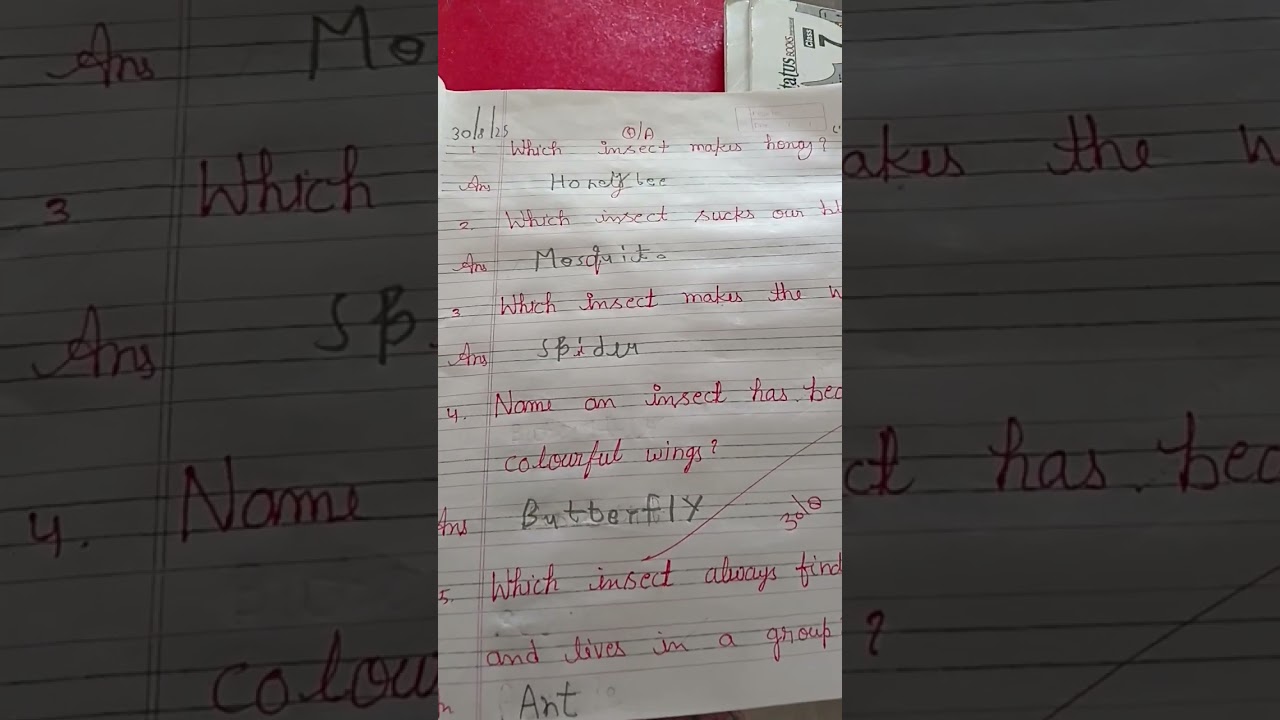 tatus BOOKS Class 7
30/8/25 Q/A
1 Which insect makes hony?
Ans Honeybee
2. Which insect sucks our bl
Ans Mosquito
3 Which insect makes the w
Ans Spider
4. Name an insect has bea
colourful wings?
Ans Butterfly
30/8
5. Which insect always find
and lives in a group?
Ant
Ans Mo
3 Which
Ans Sp
4. Name
colou
akes the w
ct has bea
?